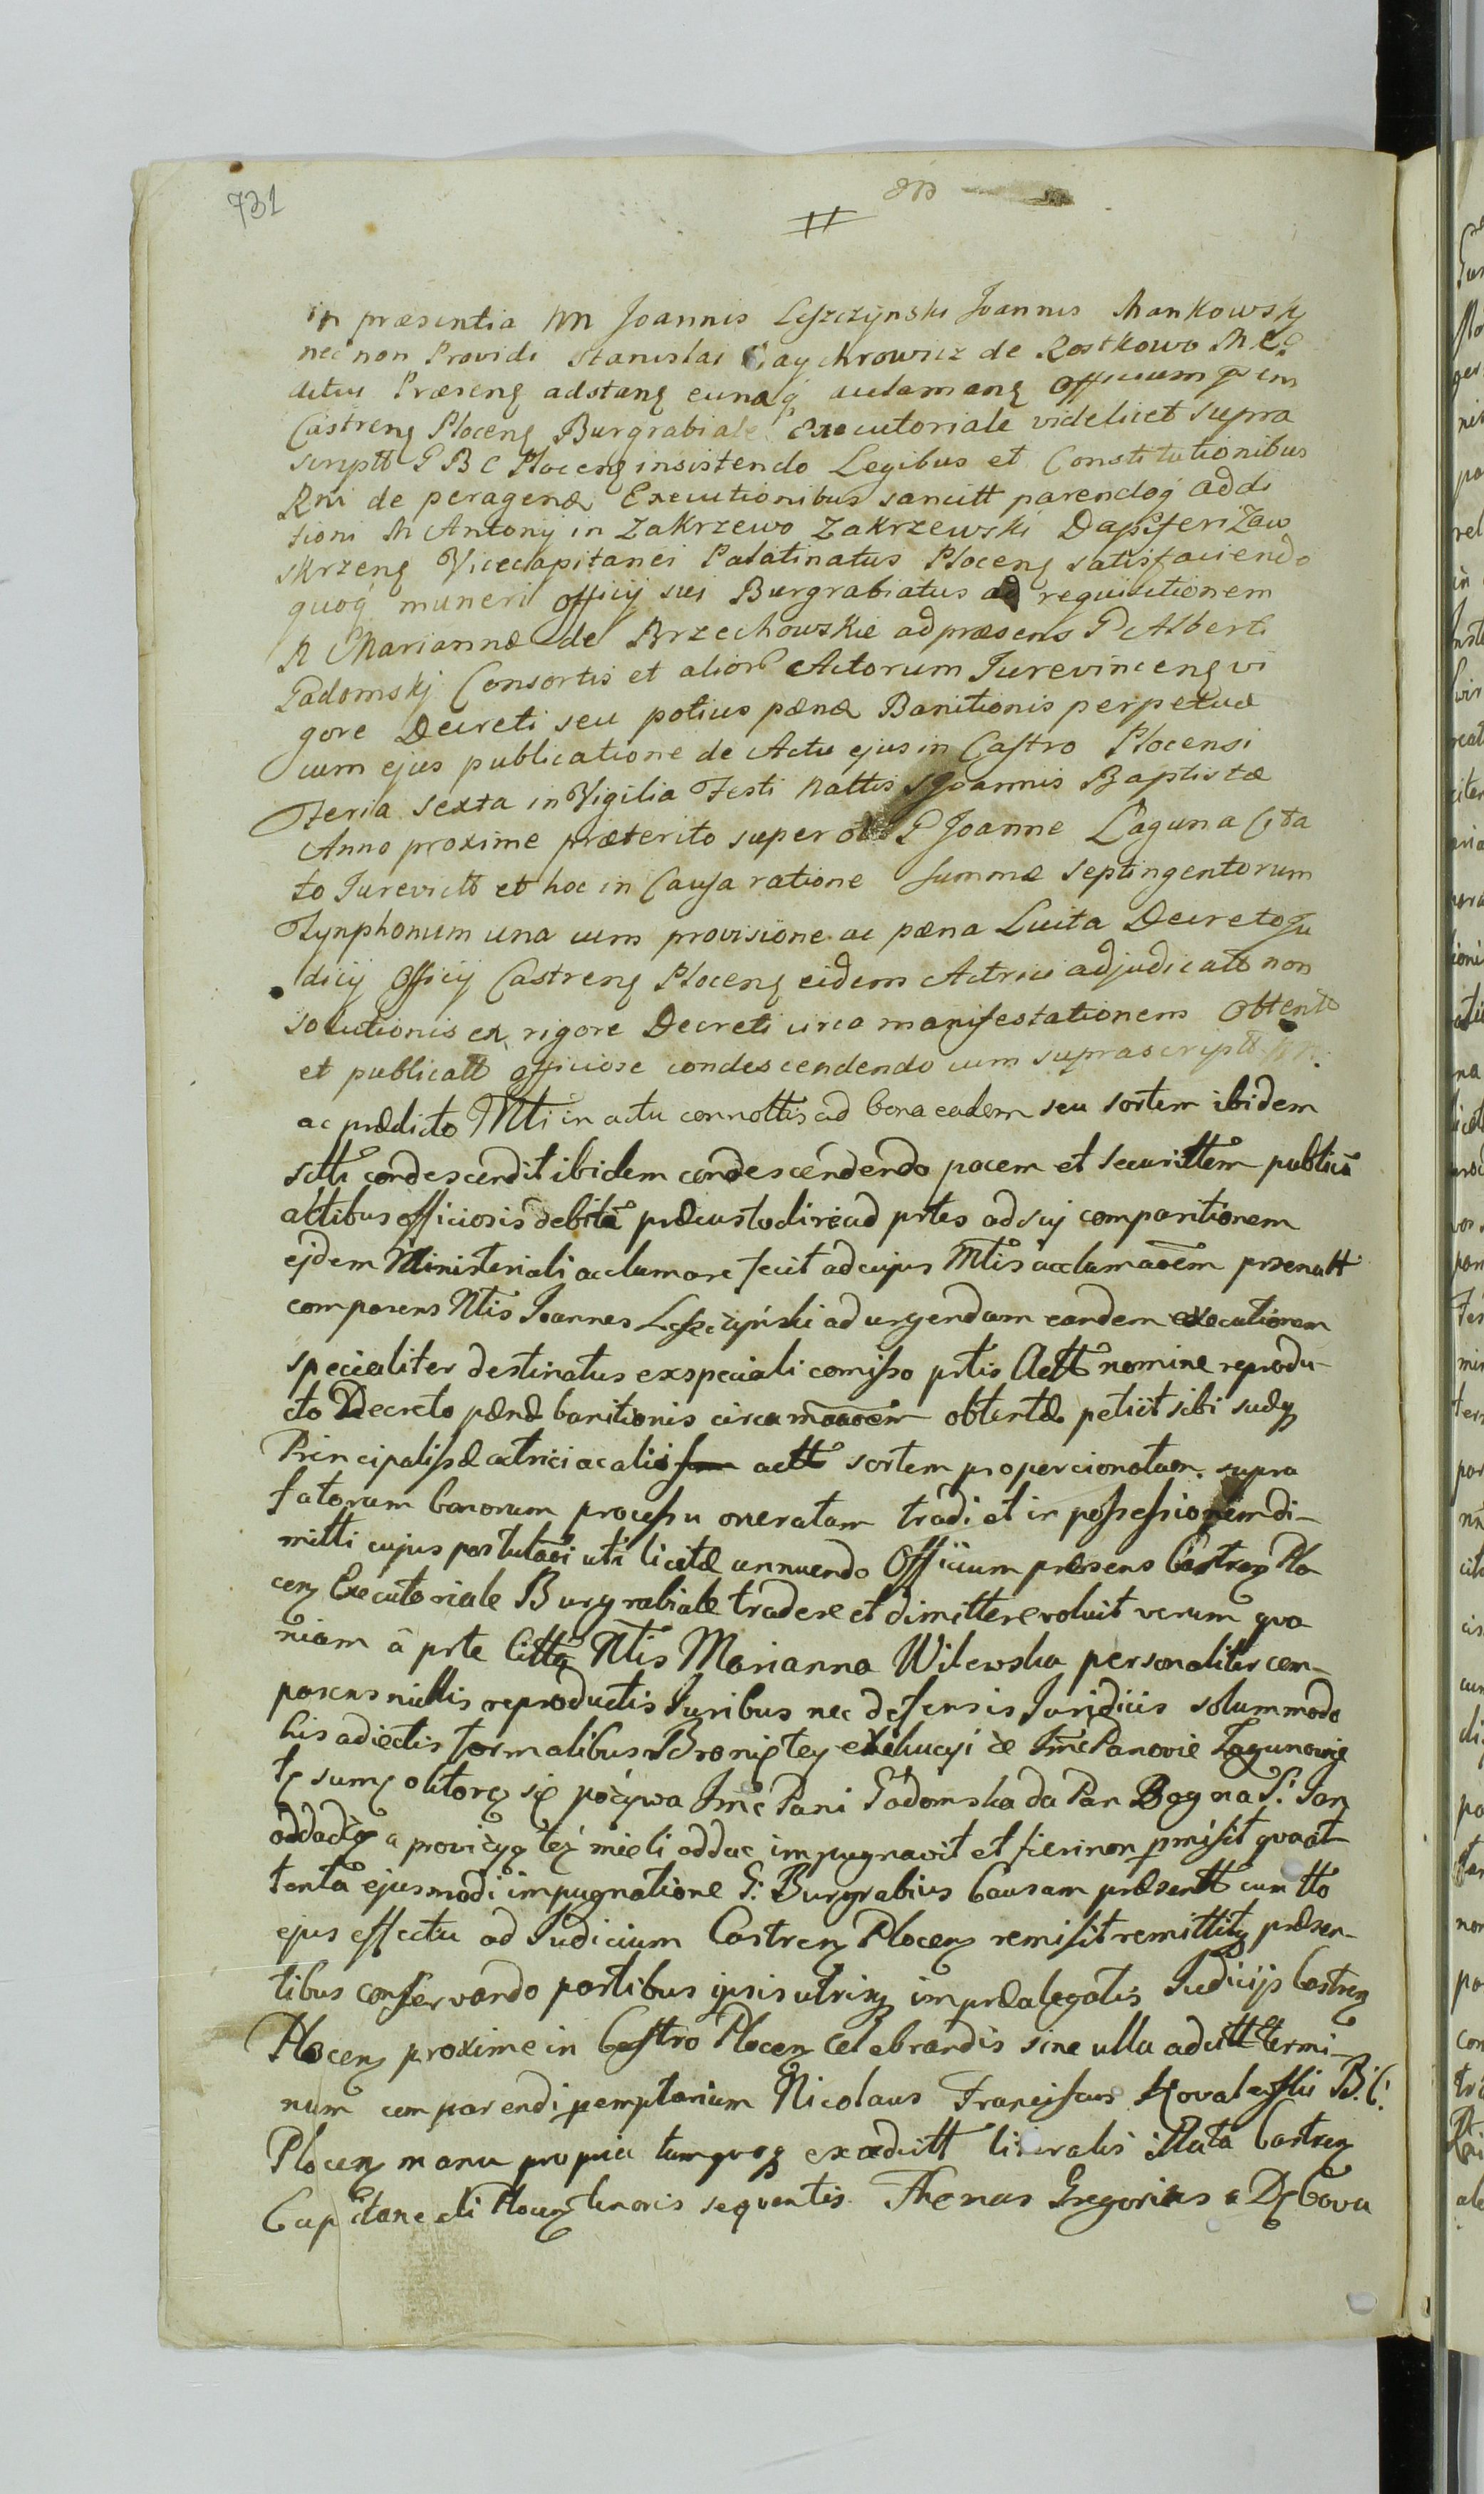 731
in præsentia NN Joannis Leszczynski Joannis Mankowskj
nec non Providi Stanislai de Rostkowo
Præseng adstang eunqʒ aclamang Officium
Castreng Ploceng Burgrabiale Executoriale videlicet supra
scriptt G B C Ploceng insistendo Legibus et Constitutionibus
Rni de peragenđ Executionibus sancitt parendoq addi
tioni M Antonij in Zakrzewo Zakrzewski Dapiferi Zaw
skrzeng Vicecapitanei Palatinatus Ploceng satisfaciendo
quoq muneri officij sui Burgrabiatus ad requisitionem
Mariannæ de Brzechowskie ad præsens G Alberti
Gadomskj Consortis et alior Actorum Jurevinceng vi
gore Decreti seu potius pænæ Banitionis perpetuæ
cum ejus publicatione de Actu ejus in Castro Plocensi
Feria Sexta in Vigilia Festi Nattis S Joannis Baptistæ
Anno proxime præterito super G Joanne Łaguna Cita
to Jurevictt et hoc in Causa ratione summæ septingentorum
Tynphonum una cum provisione ac pæna Luita Decreto Ju
dicij Officij Castreng Ploceng eidem Actrici adjudicatt non
solutionis ex rigore Decreti circa manifestationem Obtentt
et publicatt officiose condescendendo cum suprascriptt NN.
ac prædicto Mtti in actu connottis ad bona eadem seu sortem ibidem
sitti condescendit ibidem condescendendo pacem et securittem publicā
attibus officiosis debitā præcustodire ad prtes ad suj comparitionem
ejdem Ministeriali acclamare fecit ad cujus Mtis acclamaoēm præsentt
comparens Ntis Joannes Leszczyński ad urgendam eandem executionem
specialiter destinatus ex speciali comisso prtis Actt nomine reprodu-
cto Decreto pænæ banitionis circa maoēm obtentæ petiit sibi suæqʒ
Principalissæ actrici ac aliis actt sortem propercionatam supra
fatorum bonorum processu oneratam tradi et in possessionem di-
mitti cujus postulaōi uti licitæ annuendo Officium præsens Castreng Plo
ceng Executoriale Burgrabiale tradere et dimittere voluit verum quo
niam â prte Citta Ntis Marianna Wilewska personaliter com-
parens nullis reproductis Juribus nec defensis Juridicis solummodo
his adiectis formalibus Bronię tey exekucyi że Jmć Panowie Łagunowie
tę sumę o ktorą się pozywa Jmć Pani Gadomska da Pan Bog na S: Jan
oddadzą a prowizyą też mieli oddac impugnavit et fieri non pmisit qva at
tenta ejusmodi impugnatione G: Burgrabius Causam præsentt cum tto
ejus effectu ad Judicium Castreng Ploceng remisit remittitqʒ præsen-
tibus conservando partibus ipsis utrisqʒ in præalegatis Judicijs Castreng
Ploceng proxime in Castro Ploceng celebrandis sine ulla aducitt termi-
num comparendi pemptorium Nicolaus Franciscus Kovalewski B: C:
Ploceng manu propria tum quoqʒ exaducitt literalis illata Castreng
Capitaneali Ploceng tenoris sequentis Thomas Gregorius a Dębova